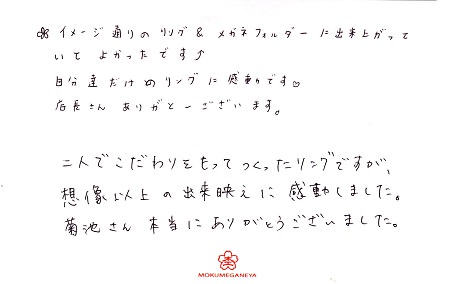 ❀ イメージ通りのリング & メガネフォルダーに出来上がって
いて よかったです♪
自分達だけのリングに感動です♡
店長さん ありがとーございます。
二人でこだわりをもってつくったリングですが、
想像以上の出来映えに感動しました。
菊池さん 本当にありがとうございました。
MOKUMEGANEYA